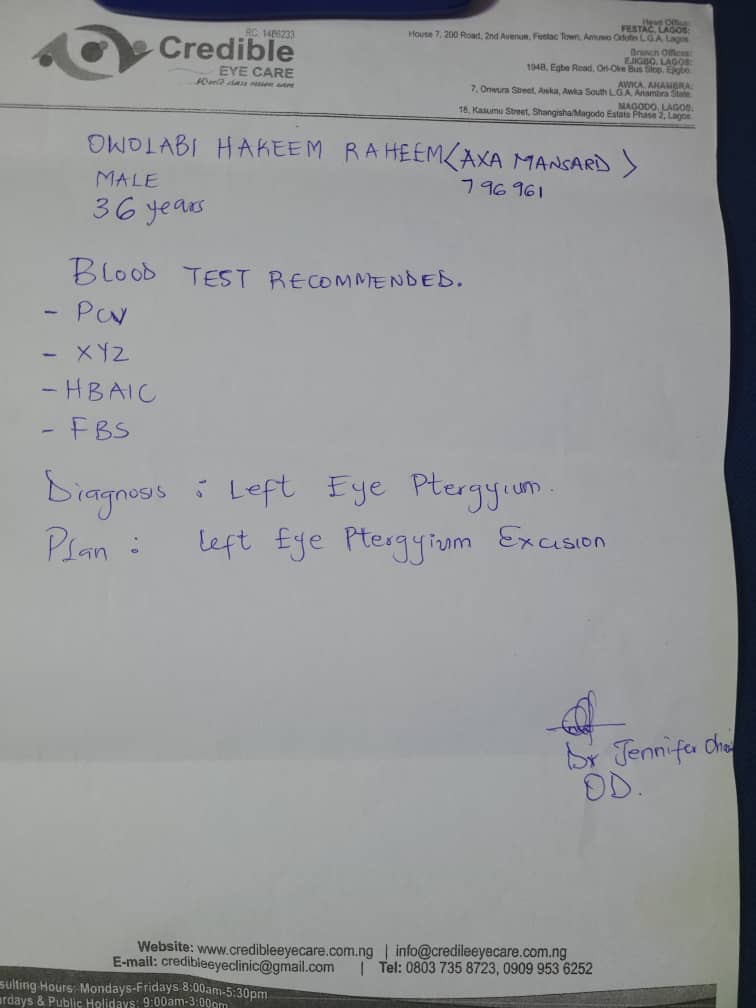 RC. 1486233
Credible
EYE CARE
...World class vision care
Head Office:
FESTAC, LAGOS:
House 7, 200 Road, 2nd Avenue, Festac Town, Amuwo Odofin L.G.A, Lagos.
Branch Offices:
EJIGBO, LAGOS:
194B, Egbe Road, Ori-Oke Bus Stop, Ejigbo.
AWKA, ANAMBRA:
7, Onwura Street, Awka, Awka South L.G.A, Anambra State.
MAGODO, LAGOS:
18, Kasumu Street, Shangisha/Magodo Estate Phase 2, Lagos.
OWOLABI HAKEEM RAHEEM (AXA MANSARD)
MALE
796961
36 years
BLOOD TEST RECOMMENDED.
- PCV
- XYZ
- HBAIC
- FBS
Diagnosis : Left Eye Ptergyium.
Plan : Left Eye Ptergyium Excision
Dr Jennifer
OD.
Website: www.credibleeyecare.com.ng | info@credileeyecare.com.ng
E-mail: credibleeyeclinic@gmail.com | Tel: 0803 735 8723, 0909 953 6252
sulting Hours: Mondays-Fridays 8:00am-5:30pm
urdays & Public Holidays: 9:00am-3:00pm